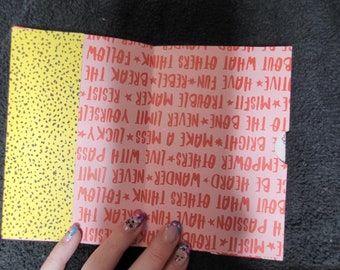 E*MISFIT*TROUB RESIST
H PASSION*HAVE FUN*BREAK THE
BOUT WHAT OTHERS THINK*FOLLOW
CE BE HEARD*WANDER*NEVER LIMIT
*EMPOWER OTHERS*LIVE WITH PASS
E BRIGHT*MAKE A MESS*LUCKY
TO THE BONE*NEVER LIMIT YOURSELF
*MISFIT*TROUBLE MAKER*RESIST
IVE*HAVE FUN*REBEL*BREAK THE
BOUT WHAT OTHERS THINK*FOLLOW
BE HEARD*WANDER*NEVER LIMIT